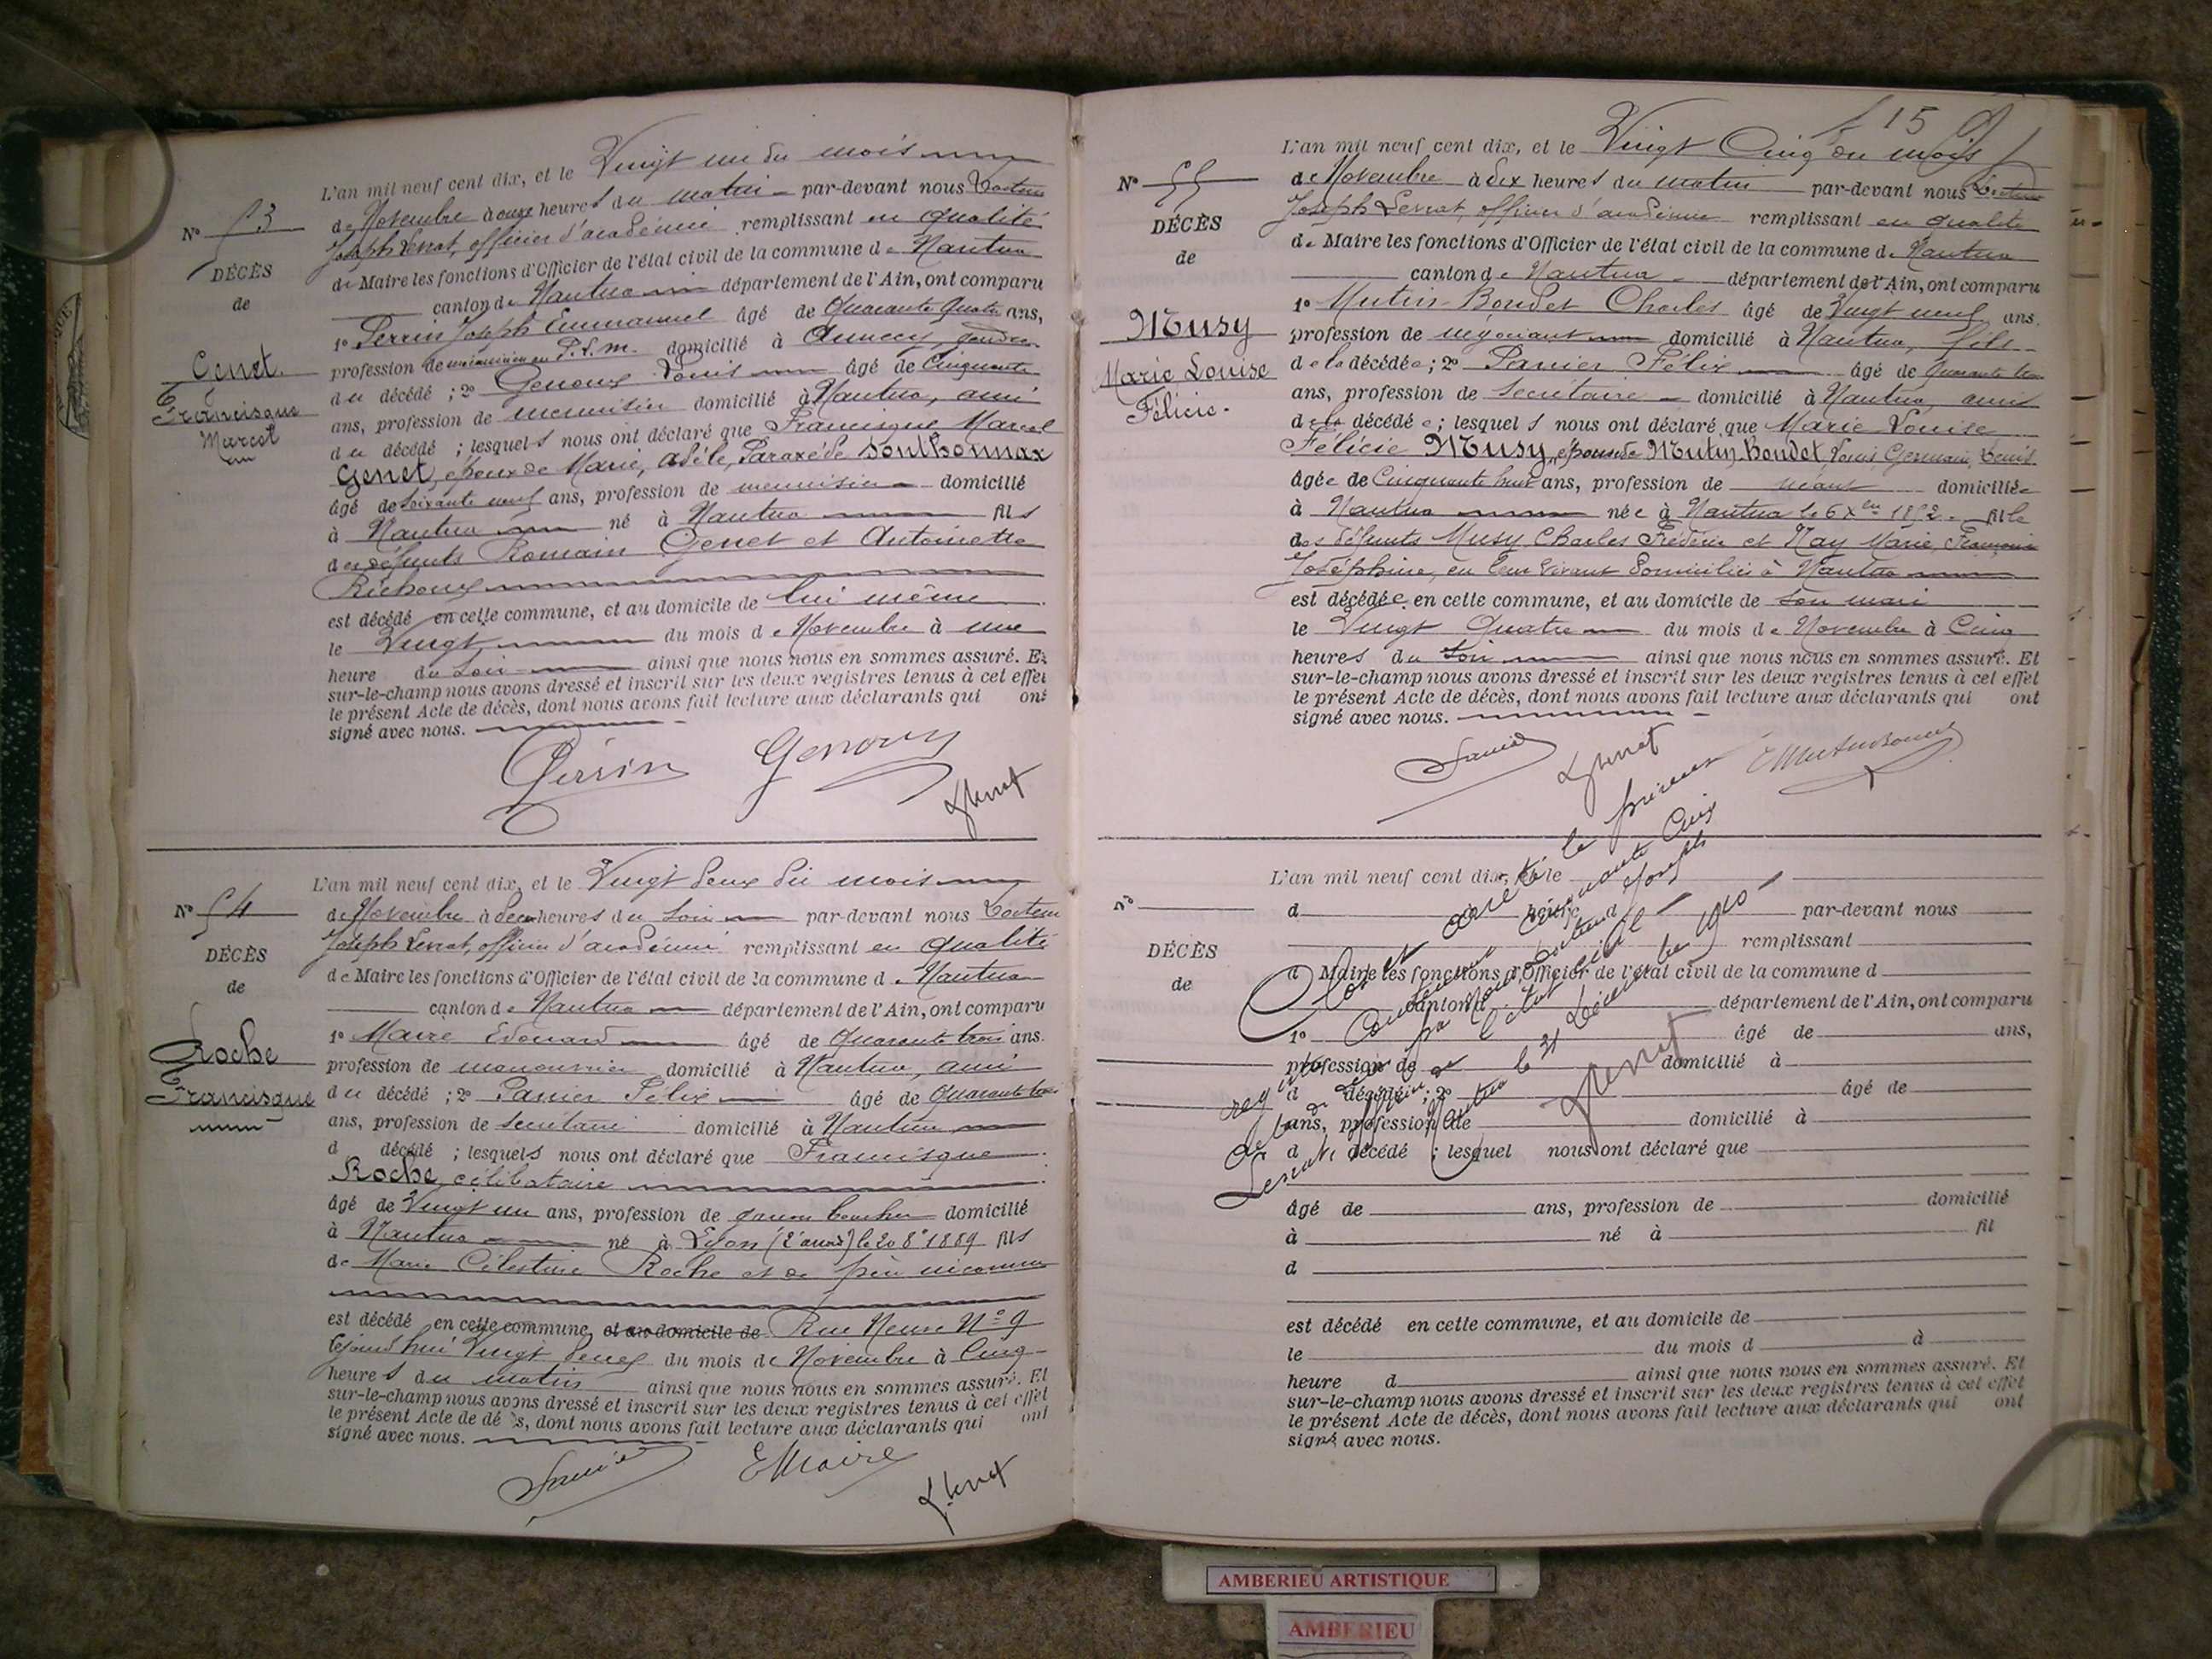 L'an mil neuf cent dix, et le Vingt un du mois
N° 53
de Novembre à onze heures du matin par-devant nous Docteur
Joseph Levrat, officier d'académie remplissant en qualité
DÉCÈS
de Maire les fonctions d'Officier de l'état civil de la commune de Nantua
de
canton de Nantua département de l'Ain, ont comparu
1° Perrin Joseph Emmanuel âgé de Quarante quatre ans,
Genet
profession de mécanicien P.L.M. domicilié à Annecy, gendre
Francisque
du décédé ; 2° Genoux Louis âgé de Cinquante
Marcel
ans, profession de menuisier domicilié à Nantua, ami
du décédé ; lesquels nous ont déclaré que Francisque Marcel
Genet, époux de Marie, Adèle, Sonthonnax
âgé de soixante neuf ans, profession de menuisier domicilié
à Nantua né à Nantua fils
des défunts Romain Genet et Antoinette
Richoux
est décédé en cette commune, et au domicile de lui même
le Vingt du mois de Novembre à une
heure du soir ainsi que nous nous en sommes assuré. Et
sur-le-champ nous avons dressé et inscrit sur les deux registres tenus à cet effet
le présent Acte de décès, dont nous avons fait lecture aux déclarants qui ont
signé avec nous.
Perrin Genoux Levrat
L'an mil neuf cent dix, et le Vingt deux du mois
N° 54
de Novembre à deux heures du soir par-devant nous Docteur
Joseph Levrat, officier d'académie remplissant en qualité
DÉCÈS
de Maire les fonctions d'Officier de l'état civil de la commune d Nantua
de
canton de Nantua département de l'Ain, ont comparu
1° Maire Edouard âgé de Quarante trois ans.
Roche
profession de manouvrier domicilié à Nantua, ami
Francisque
du décédé ; 2° Panier Félix âgé de Quarante trois
ans, profession de secrétaire domicilié à Nantua
d décédé ; lesquels nous ont déclaré que Francisque
Roche, célibataire
âgé de Vingt un ans, profession de garçon boucher domicilié
à Nantua né à Lyon (2e arrond) le 20 8e 1889 fils
de Marie Célestine Roche et de père inconnu
est décédé en cette commune, et au domicile de Rue Neuve N° 9
Cejourd'hui Vingt deux du mois de Novembre à Cinq
heures du matin ainsi que nous nous en sommes assuré. Et
sur-le-champ nous avons dressé et inscrit sur les deux registres tenus à cet effet
le présent Acte de dé s, dont nous avons fait lecture aux déclarants qui ont
signé avec nous.
Panier EMaire Levrat
15
L'an mil neuf cent dix, et le Vingt Cinq du mois
N° 55
de Novembre à dix heures du matin par-devant nous Docteur
Joseph Levrat, officier d'académie remplissant en qualité
DÉCÈS
de Maire les fonctions d'Officier de l'état civil de la commune de Nantua
de
canton de Nantua département de l'Ain, ont comparu
1° Mutin-Boudet Charles âgé de Vingt neuf ans.
Musy
profession de négociant domicilié à Nantua, fils
Marie Louise
de la décédée ; 2° Panier Félix âgé de Quarante trois
Félicie.
ans, profession de secrétaire domicilié à Nantua, ami
de la décédée ; lesquels nous ont déclaré que Marie Louise
Félicie Musy, épouse de Mutin-Boudet Louis, Germain, Denis
âgée de Cinquante huit ans, profession de néant domiciliée
à Nantua née à Nantua le 6 Xbre 1852. fille
des défunts Musy Charles Frédéric et Nay Marie, Françoise
Joséphine, en leur vivant domiciliés à Nantua
est décédée en cette commune, et au domicile de son mari
le Vingt Quatre du mois de Novembre à Cinq
heures du soir ainsi que nous nous en sommes assuré. Et
sur-le-champ nous avons dressé et inscrit sur les deux registres tenus à cet effet
le présent Acte de décès, dont nous avons fait lecture aux déclarants qui ont
signé avec nous.
Panier Levrat CMutinBoudet
L'an mil neuf cent dix, et le
N°
d à heure d par-devant nous
remplissant
DÉCÈS
d Maire les fonctions d'Officier de l'état civil de la commune d
de
canton d département de l'Ain, ont comparu
1° âgé de ans,
profession de domicilié à
d décédé ; 2° âgé de
ans, profession de domicilié à
d décédé ; lesquel nous ont déclaré que
âgé de ans, profession de domicilié
à né à fil
d
est décédé en cette commune, et au domicile de
le du mois d à
heure d ainsi que nous nous en sommes assuré. Et
sur-le-champ nous avons dressé et inscrit sur les deux registres tenus à cet effet
le présent Acte de décès, dont nous avons fait lecture aux déclarants qui ont
signé avec nous.
Clos et arrêté le présent
registre contenant Cinquante Cinq
actes par nous Docteur Joseph
Levrat officier de l'état civil
Nantua le 31 Décembre 1910
Levrat
AMBERIEU ARTISTIQUE
AMBERIEU